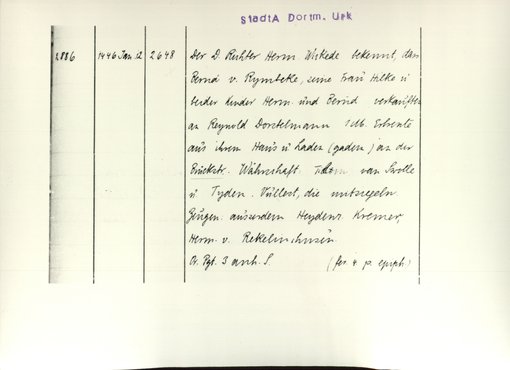 StadtA Dortm. Urk
1886 1446 Jan. 12 2648 Der D. Richter Herm Wickede bekennt, dass
Bernd v. Rymbeke, seine Frau Hilke u
beider Kinder Herm. und Bernd verkauften
an Reynold Dorstelmann 1 Mk. Erbrente
aus ihrem Haus u Laden (gadem) an der
Brückstr. Währschaft: Thom. van Swolle
u Tyden. Vullert, die mitsiegeln
Zeugen: ausserdem Heydenr. Kremer,
Herm. v. Rekelinchusen.
Or. Pgt. 3 anh. S. (fer. 4. p. epiph)